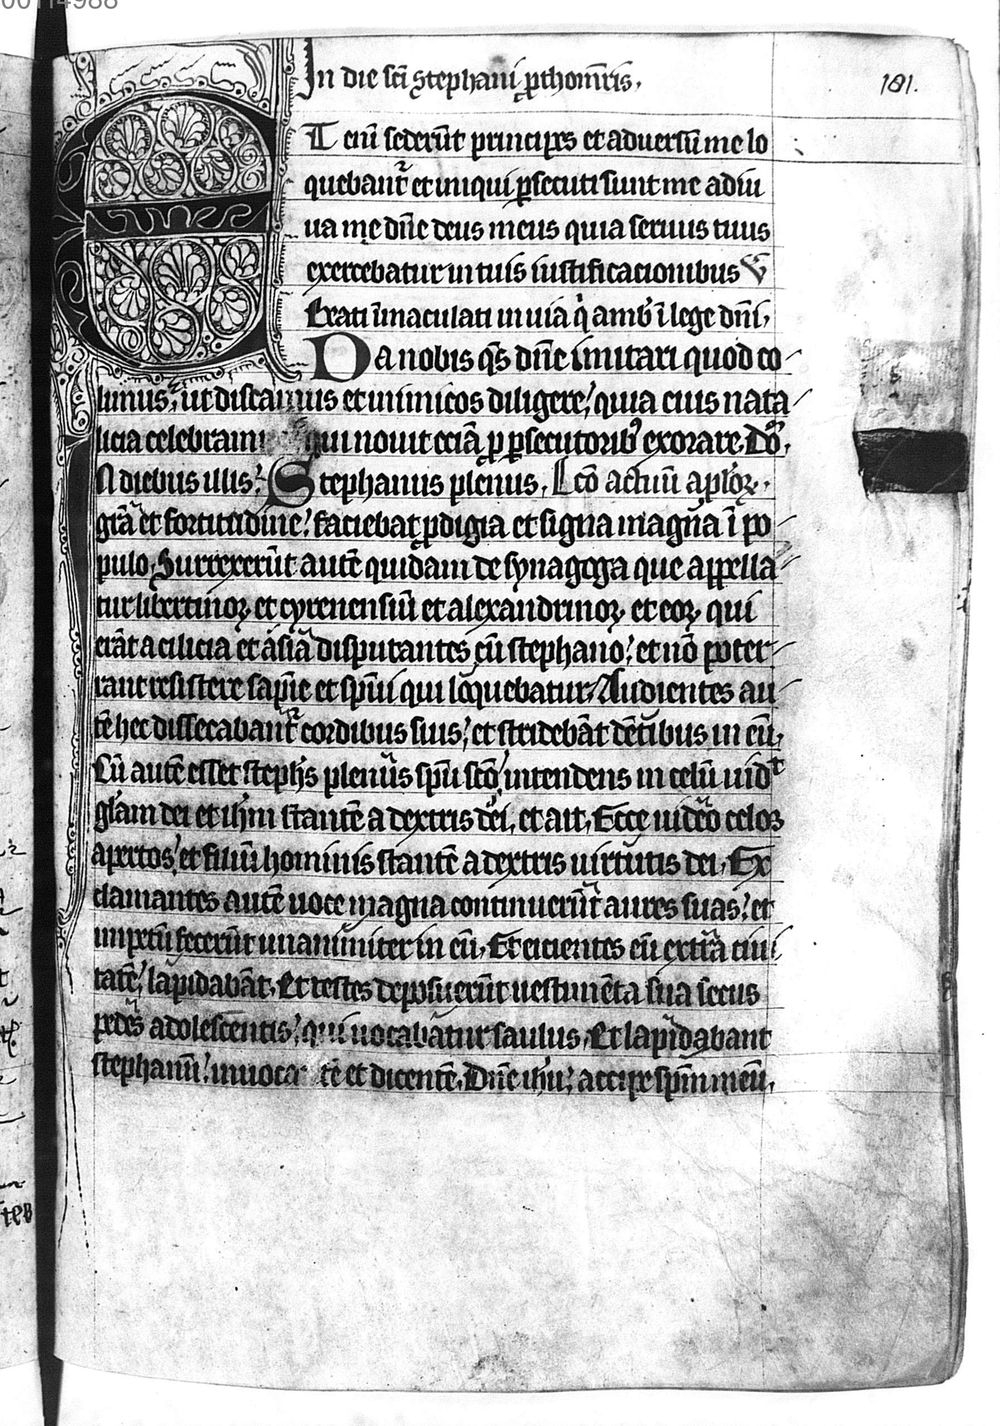 00114988
In die scī stephani ꝓthom̄ris.
181.
ET enī sederūt principes et adversū me lo
quebant᷑ et iniqui ꝑsecuti sunt me adiu
va me dn̄e deus meus quia servus tuus
exercebatur in tuis iustificacionibus ℣
Beati īmaculati in via q̇ ambᷤ ī lege dn̄i.
Da nobis qs̄ dn̄e imitari quod co
limus; ut discamus et inimicos diligere; quia eius nata
licia celebramꝰ qui novit eciā ꝓ ꝑsecutoribᷤ exorare. Dō.
N diebus illis; Stephanus plenus. Lcō actuū apl̄oꝝ.
gr̄a et fortitudine; faciebat ꝓdigia et signa magna ī po
pulo. Surrexerūt autē quidam de synagoga que appella
tur libertinoꝝ et cyrenensiū et alexandrinoꝝ et eoꝝ qui
erāt a cilicia et asia disputantes cū stephano; et nō poter
rant resistere sapīe et spūi qui loquebatur. Audientes au
tē hec dissecabant᷑ cordibus suis; et stridebāt dētibus in eū.
Cū autē esset stephs̄ plenus spū scō intendens in celū vidᵗ
gl̄am dei et ih̄m stantē a dextris dei. et ait. Ecce video celos
apertos; et filiū hominis stantē a dextris virtutis dei. Ex
clamantes autē voce magna continuerūt aures suas; et
impetū fecerūt unanimiter in eū. Et eicientes eū extra civi
tatē; lapidabāt. Et testes deposuerūt vestimēta sua secus
pedes adolescentis; qui vocabatur saulus. Et lapidabant
stephanū; invoca tē et dicentē. Dn̄e ih̄u; accipe spm̄ meū.